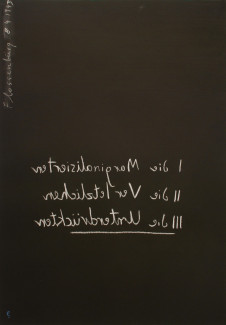 Flossenbürg
I die Marginalisierten
II die Verletzlichen
III die Unterdrückten